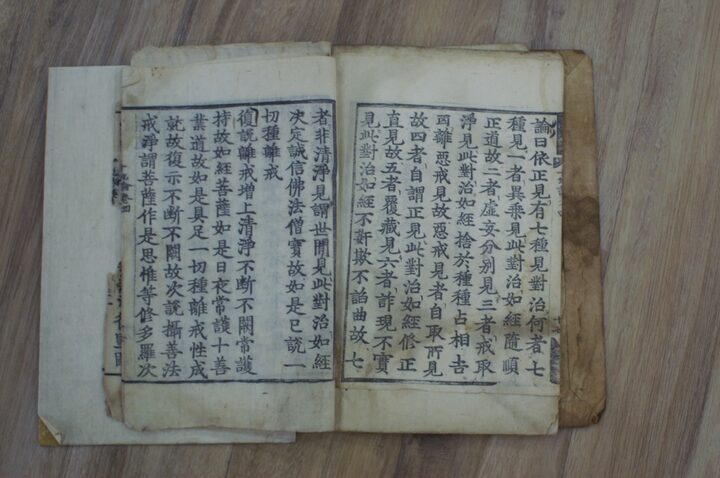 論曰依正見有七種見對治何者七
種見一者異乘見此對治如經隨順
正道故二者虛妄分別見三者戒取
淨見此對治如經捨於種種占相吉
凶離惡戒見故惡戒見者自取所見
故四者自謂正見此對治如經修正
直見故五者覆藏見六者詐現不實
見此對治如經不姧欺不諂曲故七
者非清淨見謂世間見此對治如經
决定誠信佛法僧寶故如是已說一
切種離戒
復說離戒增上清淨不斷不闕常護
持故如經菩薩如是日夜常護十善
業道故如是具足一切種離戒性成
就故復示不斷不闕故次說攝善法
戒淨謂菩薩作是思惟等修多羅次
論卷四